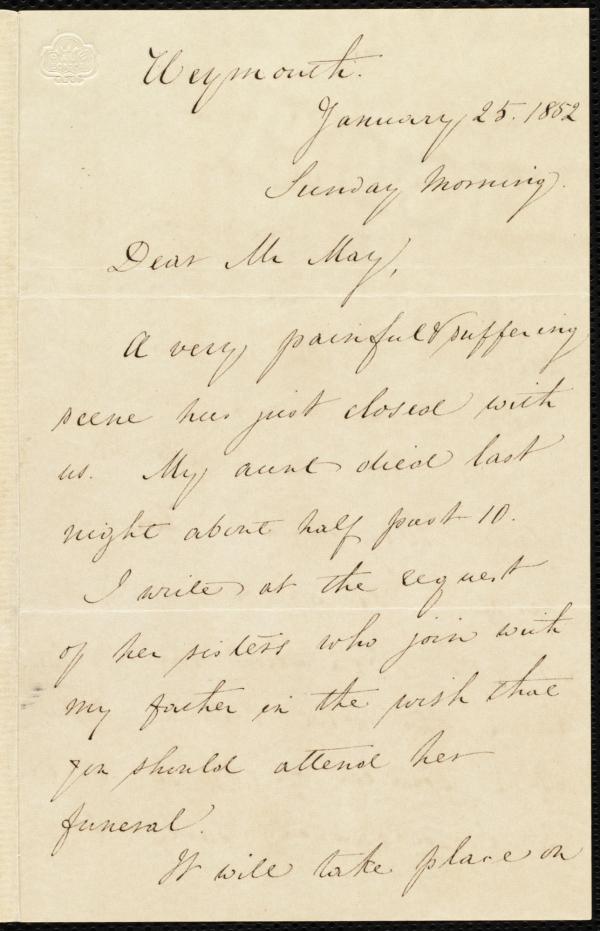 Weymouth.
January 25. 1852
Sunday Morning.
Dear Mr May,
A very painful & suffering
scene has just closed with
us. My aunt died last
night about half past 10.
I write at the request
of her sisters who join with
my father in the wish that
you should attend her
funeral.
It will take place on